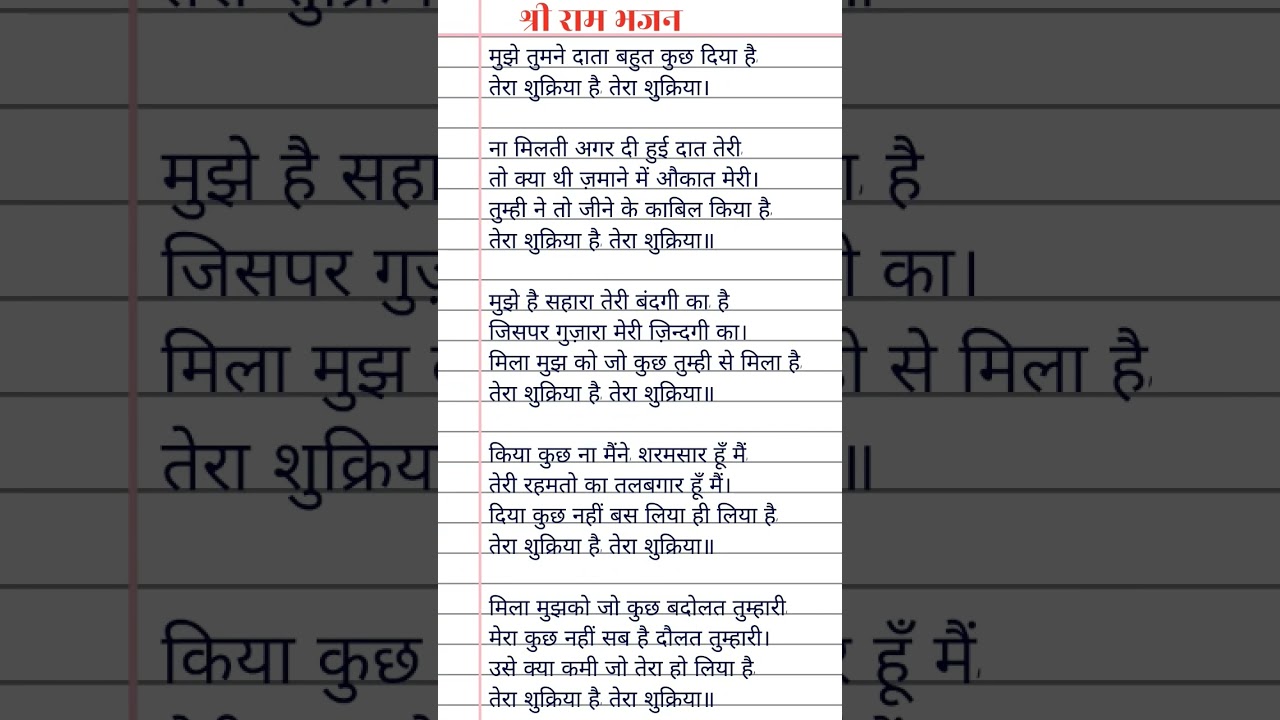 श्री राम भजन
मुझे तुमने दाता बहुत कुछ दिया है,
तेरा शुक्रिया है, तेरा शुक्रिया।
ना मिलती अगर दी हुई दात तेरी,
तो क्या थी ज़माने में औकात मेरी।
तुम्ही ने तो जीने के काबिल किया है,
तेरा शुक्रिया है, तेरा शुक्रिया॥
मुझे है सहारा तेरी बंदगी का, है
जिसपर गुज़ारा मेरी ज़िन्दगी का।
मिला मुझ को जो कुछ तुम्ही से मिला है,
तेरा शुक्रिया है, तेरा शुक्रिया॥
किया कुछ ना मैंने, शरमसार हूँ मैं,
तेरी रहमतो का तलबगार हूँ मैं।
दिया कुछ नहीं बस लिया ही लिया है,
तेरा शुक्रिया है, तेरा शुक्रिया॥
मिला मुझको जो कुछ बदोलत तुम्हारी,
मेरा कुछ नहीं सब है दौलत तुम्हारी।
उसे क्या कमी जो तेरा हो लिया है,
तेरा शुक्रिया है, तेरा शुक्रिया॥